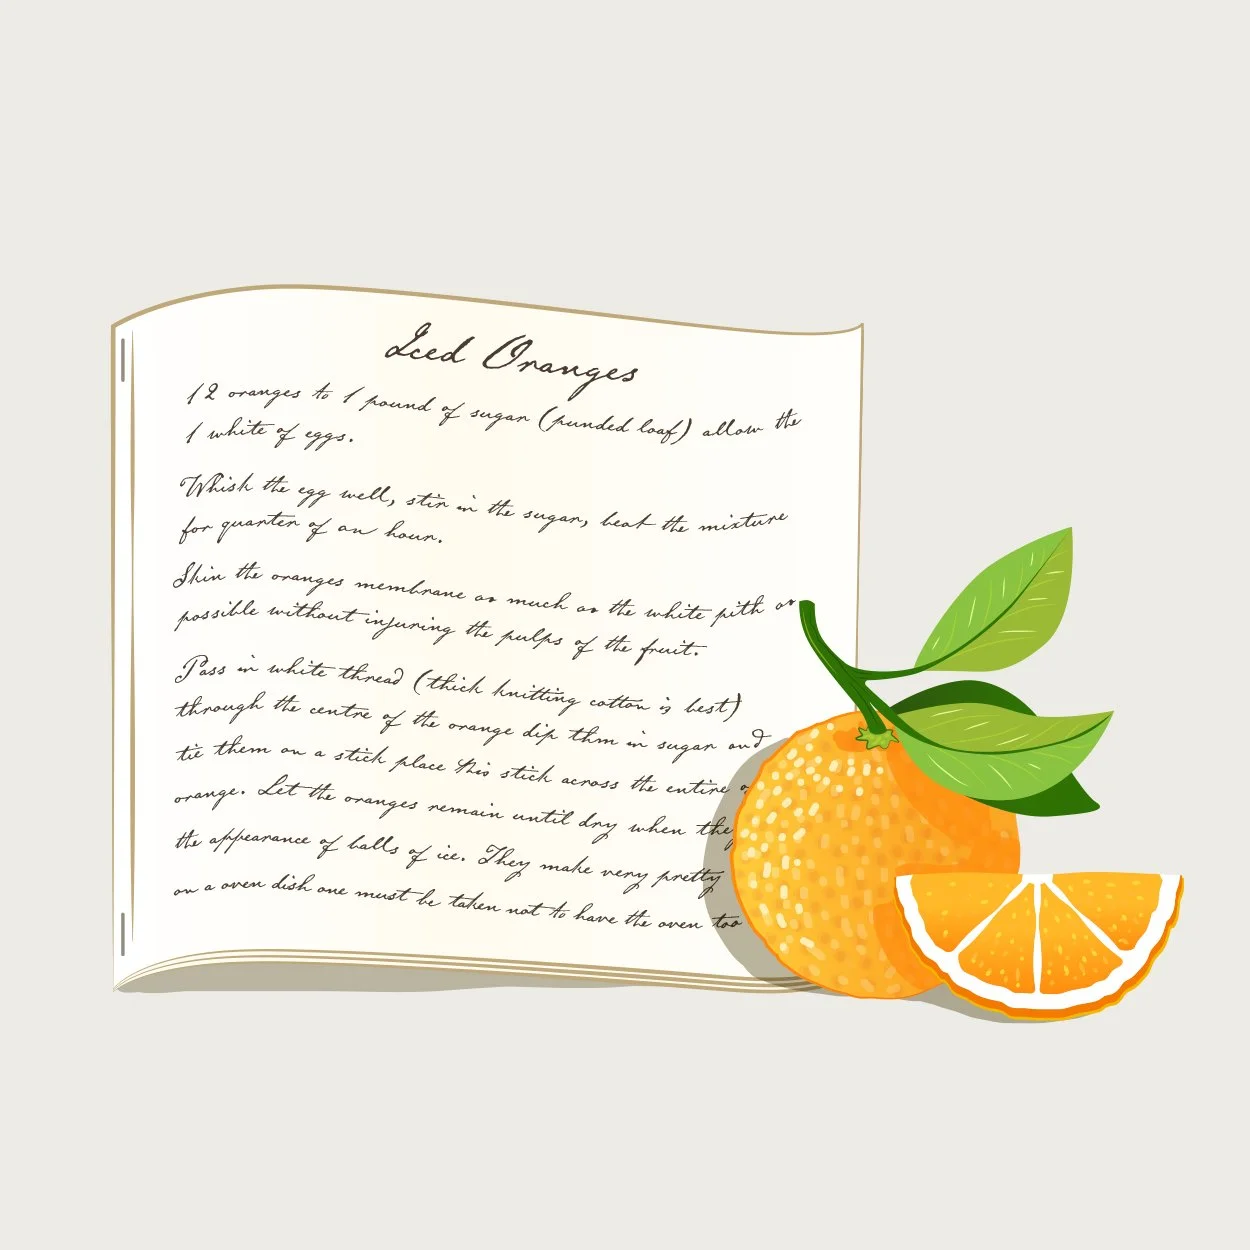 Iced Oranges
12 oranges to 1 pound of sugar (punded loaf) allow the
1 white of eggs.
Whisk the egg well, stir in the sugar, beat the mixture
for quarter of an hour.
Skin the oranges membrane as much as the white pith as
possible without injuring the pulps of the fruit.
Pass in white thread (thick knitting cotton is best)
through the centre of the orange dip thm in sugar and
tie them on a stick place this stick across the entire
orange. Let the oranges remain until dry when they
the appearance of balls of ice. They make very pretty
on a oven dish one must be taken not to have the oven too